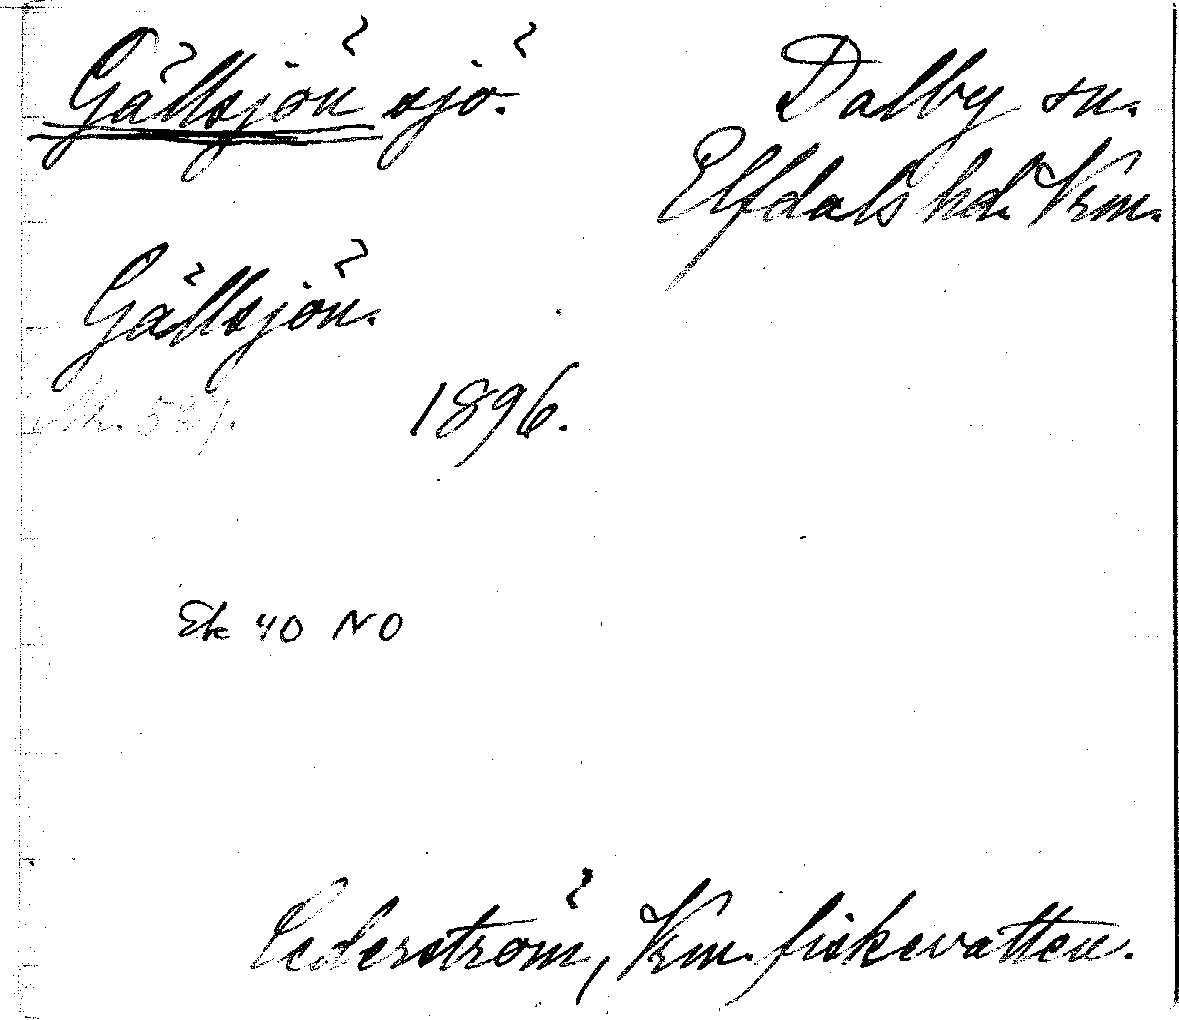 Gällsjön sjö.
Dalby sn.
Elfdals hd. Vrm.
Gällsjön.
1896.
Ek 40 NO
Cederström, Vrm. fiskevatten.